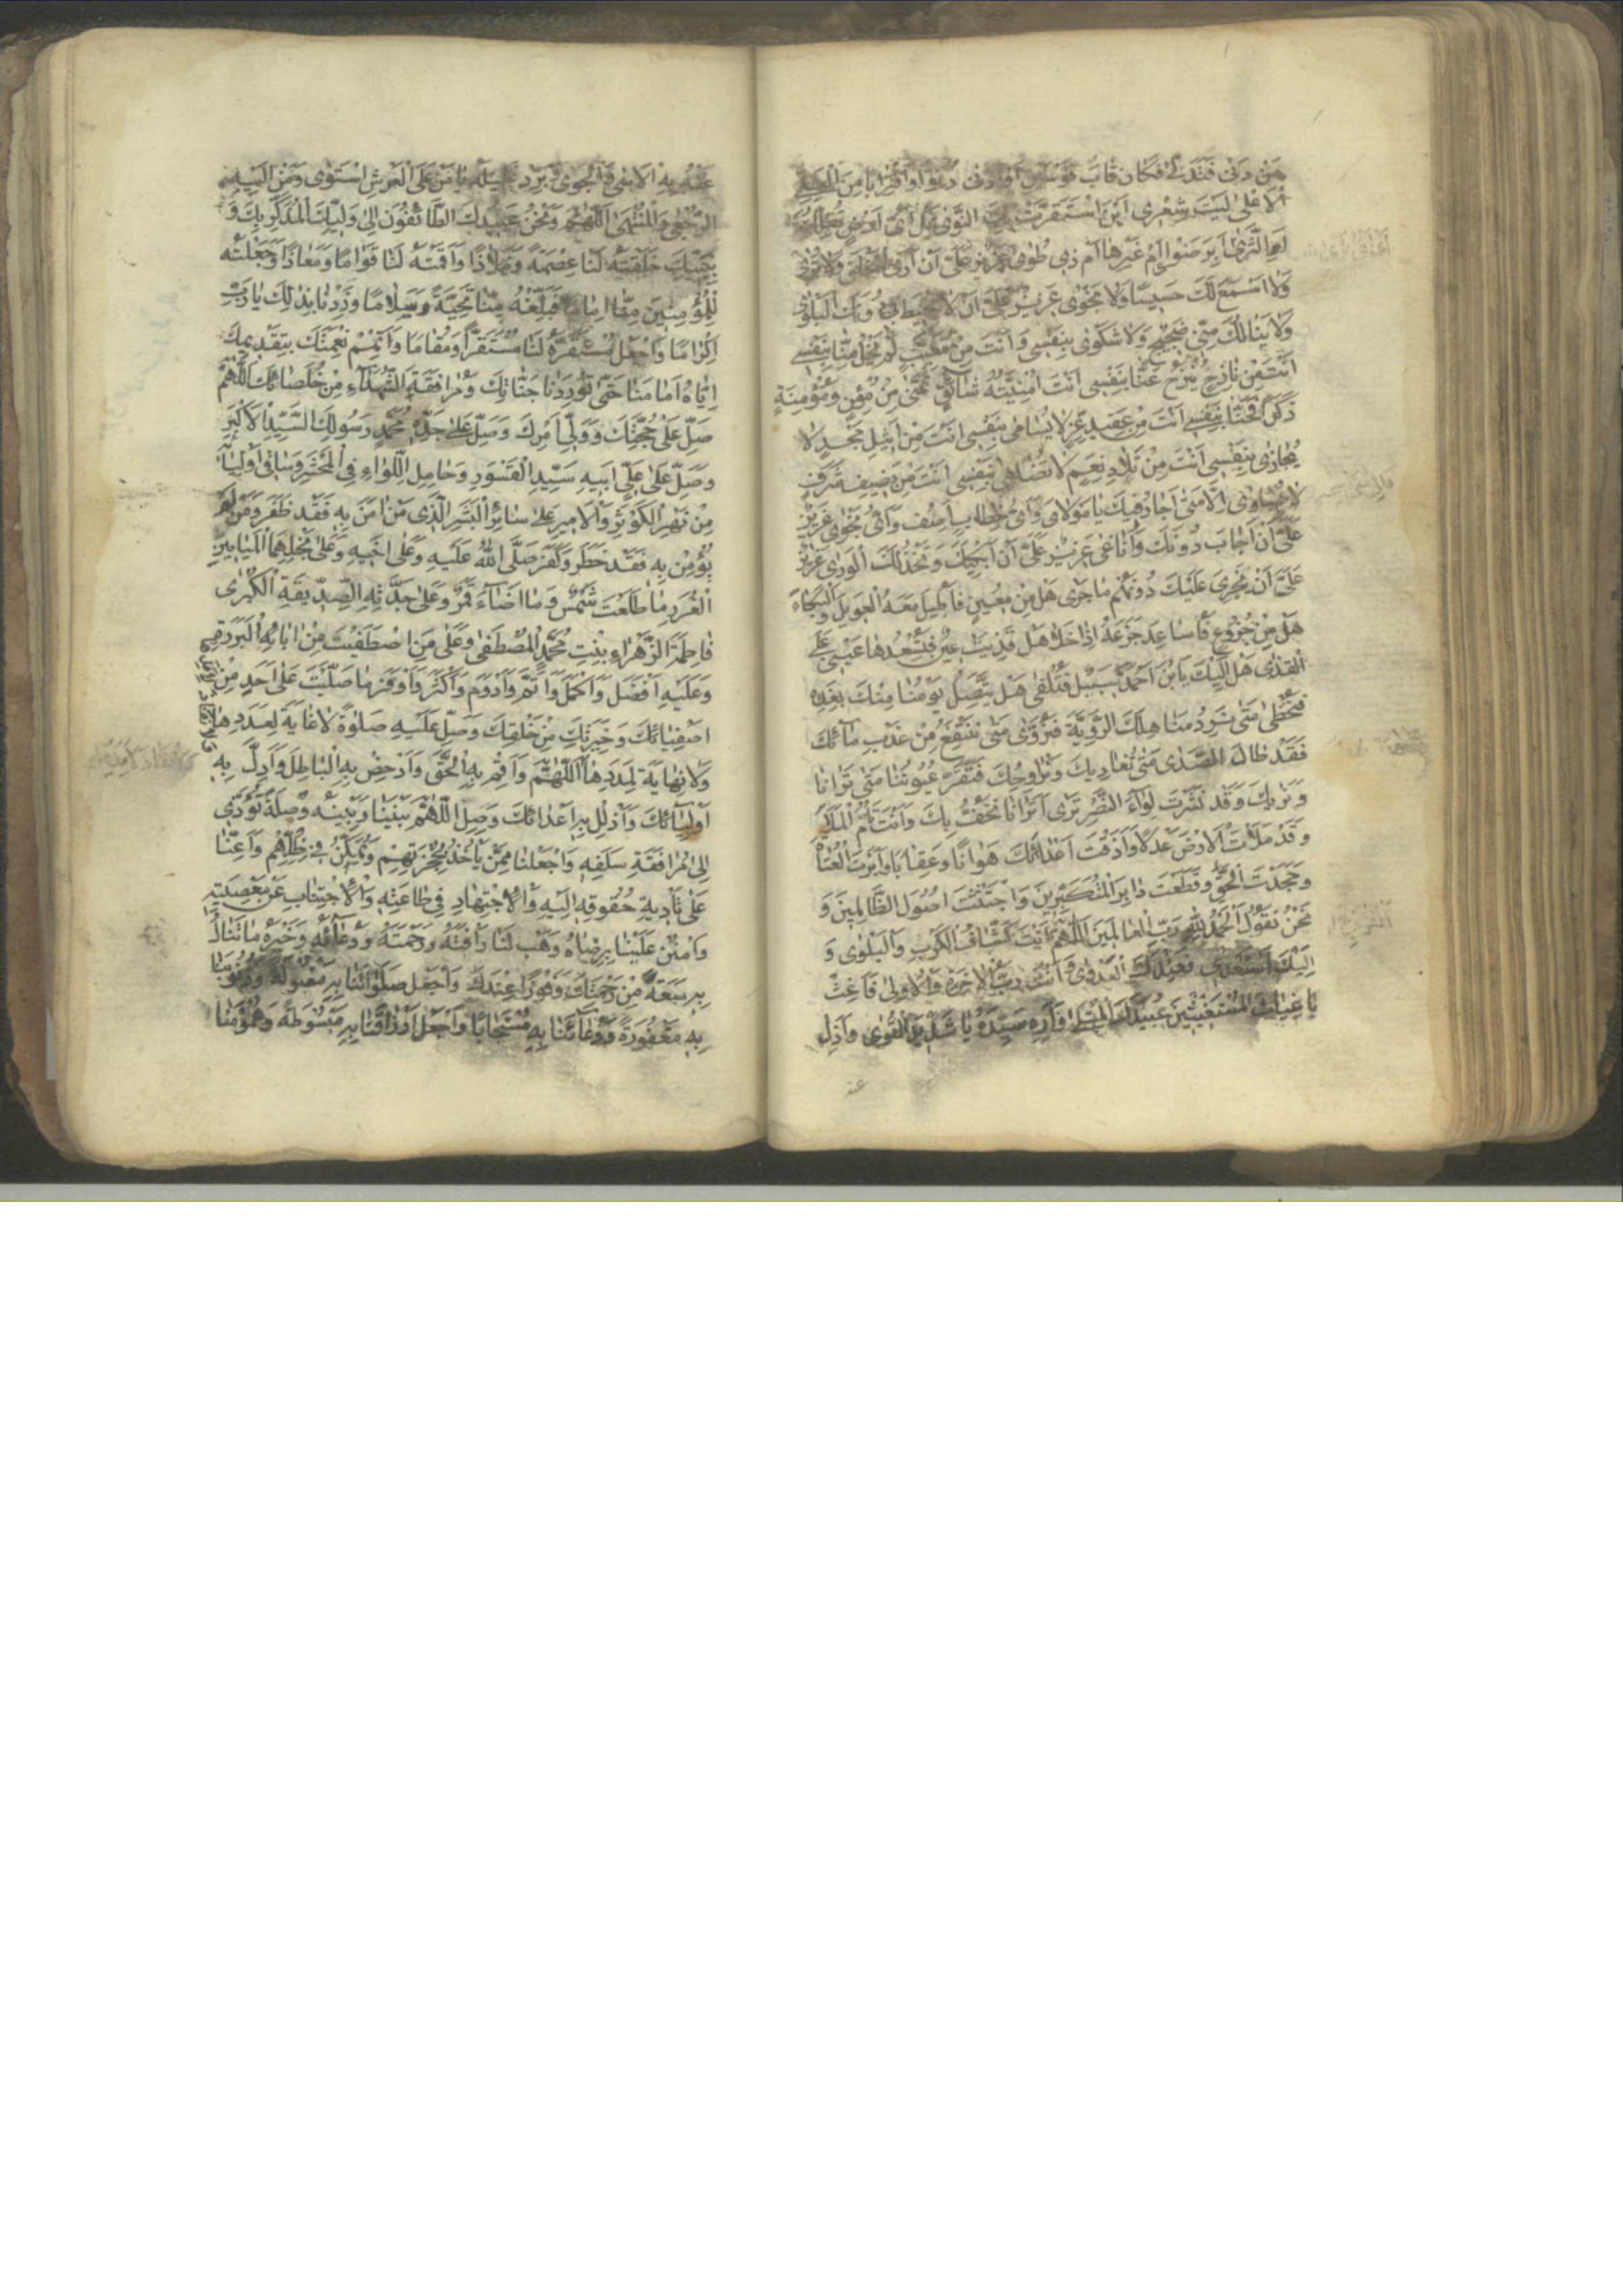 مَنْ دَنىٰ فَتَدَلّٰى فَكَانَ قَابَ قَوْسَيْنِ اَوْ اَدْنىٰ دُنُوًّا وَاقْتِرَابًا مِنَ الْعَلِىِّ
الْاَعْلىٰ لَيْتَ شِعْرِى اَيْنَ اسْتَقَرَّتْ بِكَ النَّوىٰ بَلْ اَىُّ اَرْضٍ تُقِلُّكَ
اَوِ الثَّرىٰ اَبِرَضْوٰى اَمْ غَيْرِهَا اَمْ ذِى طُوىٰ عَزِيزٌ عَلَىَّ اَنْ اَرَى الْخَلْقَ وَلَا تُرىٰ
وَلَا اَسْمَعُ لَكَ حَسِيسًا وَلَا نَجْوىٰ عَزِيزٌ عَلَىَّ اَنْ لَا يُحِيطَ بِى دُونَكَ الْبَلْوىٰ
وَلَا يَنَالُكَ مِنّى ضَجِيجٌ وَلَا شَكْوىٰ بِنَفْسِى اَنْتَ مِنْ مُغَيَّبٍ لَمْ يَخْلُ مِنَّا بِنَفْسِى
اَنْتَ مِنْ نَازِحٍ مَا نَزَحَ عَنَّا بِنَفْسِى اَنْتَ اُمْنِيَّةُ شَائِقٍ يَتَمَنّىٰ مِنْ مُؤْمِنٍ وَمُؤْمِنَةٍ
ذَكَرَا فَحَنَّا بِنَفْسِى اَنْتَ مِنْ عَقِيدِ عِزٍّ لَا يُسَامىٰ بِنَفْسِى اَنْتَ مِنْ اَثِيلِ مَجْدٍ لَا
يُجَازىٰ بِنَفْسِى اَنْتَ مِنْ تِلَادِ نِعَمٍ لَا تُضَاهىٰ بِنَفْسِى اَنْتَ مِنْ نَصِيفِ شَرَفٍ
لَا يُسَاوىٰ اِلىٰ مَتىٰ اَحَارُ فِيكَ يَا مَوْلَاىَ وَاَىَّ خِطَابٍ اَصِفُ وَاَىَّ نَجْوىٰ عَزِيزٌ
عَلَىَّ اَنْ اُجَابَ دُونَكَ وَاُنَاغىٰ عَزِيزٌ عَلَىَّ اَنْ اَبْكِيَكَ وَيَخْذُلَكَ الْوَرىٰ عَزِيزٌ
عَلَىَّ اَنْ يَجْرِىَ عَلَيْكَ دُونَهُمْ مَا جَرىٰ هَلْ مِنْ مُعِينٍ فَاُطِيلَ مَعَهُ الْعَوِيلَ وَالْبُكَاءَ
هَلْ مِنْ جَزُوعٍ فَاُسَاعِدَ جَزَعَهُ اِذَا خَلَا هَلْ قَذِيَتْ عَيْنٌ فَتُسْعِدَهَا عَيْنِى عَلَى
الْقَذىٰ هَلْ اِلَيْكَ يَابْنَ اَحْمَدَ سَبِيلٌ فَتُلْقىٰ هَلْ يَتَّصِلُ يَوْمُنَا مِنْكَ بِغَدِهِ
فَنَحْظىٰ مَتىٰ نَرِدُ مَنَاهِلَكَ الرَّوِيَّةَ فَنَرْوىٰ مَتىٰ نَنْتَقِعُ مِنْ عَذْبِ مَائِكَ
فَقَدْ طَالَ الصَّدىٰ مَتىٰ نُغَادِيكَ وَنُرَاوِحُكَ فَتَقَرَّ عُيُونُنَا مَتىٰ تَرَانَا
وَنَرَاكَ وَقَدْ نَشَرْتَ لِوَاءَ النَّصْرِ تُرىٰ اَتَرَانَا نَحُفُّ بِكَ وَاَنْتَ تَؤُمُّ الْمَلَأَ
وَقَدْ مَلَأْتَ الْاَرْضَ عَدْلًا وَاَذَقْتَ اَعْدَائَكَ هَوَانًا وَعِقَابًا وَاَبَرْتَ الْعُتَاةَ
وَجَحَدَتَ الْحَقِّ وَقَطَعْتَ دَابِرَ الْمُتَكَبِّرِينَ وَاجْتَثَثْتَ اُصُولَ الظَّالِمِينَ وَ
نَحْنُ نَقُولُ اَلْحَمْدُ لِلّٰهِ رَبِّ الْعَالَمِينَ اَللّٰهُمَّ اَنْتَ كَشَّافُ الْكُرَبِ وَالْبَلْوىٰ وَ
اِلَيْكَ اَسْتَعْدِى فَعِنْدَكَ الْعَدْوىٰ وَاَنْتَ رَبُّ الْاٰخِرَةِ وَالْاُولىٰ فَاَغِثْ
يَا غِيَاثَ الْمُسْتَغِيثِينَ عُبَيْدَكَ الْمُبْتَلىٰ وَاَرِهِ سَيِّدَهُ يَا شَدِيدَ الْقُوىٰ وَاَزِلْ
عنه
عَنْهُ بِهِ الْاَسىٰ وَالْجَوىٰ وَبَرِّدْ غَلِيلَهُ يَا مَنْ عَلَى الْعَرْشِ اسْتَوىٰ وَمَنْ اِلَيْهِ
الرُّجْعىٰ وَالْمُنْتَهىٰ اَللّٰهُمَّ وَنَحْنُ عَبِيدُكَ التَّائِقُونَ اِلىٰ وَلِيِّكَ الْمُذَكِّرِ بِكَ وَ
بِنَبِيِّكَ خَلَقْتَهُ لَنَا عِصْمَةً وَمَلَاذًا وَاَقَمْتَهُ لَنَا قَوَامًا وَمَعَاذًا وَجَعَلْتَهُ
لِلْمُؤْمِنِينَ مِنَّا اِمَامًا فَبَلِّغْهُ مِنَّا تَحِيَّةً وَسَلَامًا وَزِدْنَا بِذٰلِكَ يَا رَبِّ
اِكْرَامًا وَاجْعَلْ مُسْتَقَرَّهُ لَنَا مُسْتَقَرًّا وَمُقَامًا وَاَتْمِمْ نِعْمَتَكَ بِتَقْدِيمِكَ
اِيَّاهُ اَمَامَنَا حَتّىٰ تُورِدَنَا جَنَّاتِكَ وَمُرَافَقَةَ الشُّهَدَاءِ مِنْ خُلَصَائِكَ اَللّٰهُمَّ
صَلِّ عَلىٰ حُجَّتِكَ وَوَلِىِّ اَمْرِكَ وَصَلِّ عَلىٰ جَدِّهِ مُحَمَّدٍ رَسُولِكَ السَّيِّدِ الْاَكْبَرِ
وَصَلِّ عَلىٰ عَلِىٍّ اَبِيهِ سَيِّدِ الْقَسْوَرِ وَحَامِلِ اللِّوَاءِ فِى الْمَحْشَرِ وَسَاقِى اَوْلِيَائِهِ
مِنْ نَهْرِ الْكَوْثَرِ وَالْاَمِيرِ عَلىٰ سَائِرِ الْبَشَرِ الَّذِى مَنْ اٰمَنَ بِهِ فَقَدْ ظَفَرَ وَمَنْ لَمْ
يُؤْمِنْ بِهِ فَقَدْ خَطَرَ وَكَفَرَ صَلَّى اللّٰهُ عَلَيْهِ وَعَلىٰ اَخِيهِ وَعَلىٰ نَجْلِهِمَا الْمَيَامِينِ
الْغُرَرِ مَا طَلَعَتْ شَمْسٌ وَمَا اَضَاءَ قَمَرٌ وَعَلىٰ جَدَّتِهِ الصِّدِّيقَةِ الْكُبْرىٰ
فَاطِمَةَ الزَّهْرَاءِ بِنْتِ مُحَمَّدٍ الْمُصْطَفىٰ وَعَلىٰ مَنِ اصْطَفَيْتَ مِنْ اٰبَائِهِ الْبَرَرَةِ
وَعَلَيْهِ اَفْضَلَ وَاَكْمَلَ وَاَتَمَّ وَاَدْوَمَ وَاَكْثَرَ وَاَوْفَرَ مَا صَلَّيْتَ عَلىٰ اَحَدٍ مِنْ
اَصْفِيَائِكَ وَخِيَرَتِكَ مِنْ خَلْقِكَ وَصَلِّ عَلَيْهِ صَلٰوةً لَا غَايَةَ لِعَدَدِهَا
وَلَا نِهَايَةَ لِمَدَدِهَا اَللّٰهُمَّ وَاَقِمْ بِهِ الْحَقَّ وَاَدْحِضْ بِهِ الْبَاطِلَ وَاَدِلْ بِهِ
اَوْلِيَائَكَ وَاَذْلِلْ بِهِ اَعْدَائَكَ وَصِلِ اللّٰهُمَّ بَيْنَنَا وَبَيْنَهُ وُصْلَةً تُؤَدِّى
اِلىٰ مُرَافَقَةِ سَلَفِهِ وَاجْعَلْنَا مِمَّنْ يَأْخُذُ بِحُجْزَتِهِمْ وَيَمْكُنُ فِى ظِلِّهِمْ وَاَعِنَّا
عَلىٰ تَأْدِيَةِ حُقُوقِهِ اِلَيْهِ وَالْاِجْتِهَادِ فِى طَاعَتِهِ وَالْاِجْتِنَابِ عَنْ مَعْصِيَتِهِ
وَامْنُنْ عَلَيْنَا بِرِضَاهُ وَهَبْ لَنَا رَأْفَتَهُ وَرَحْمَتَهُ وَدُعَائَهُ وَخَيْرَهُ مَا نَنَالُ
بِهِ سَعَةً مِنْ رَحْمَتِكَ وَفَوْزًا عِنْدَكَ وَاجْعَلْ صَلَوَاتَنَا بِهِ مَقْبُولَةً وَذُنُوبَنَا
بِهِ مَغْفُورَةً وَدُعَائَنَا بِهِ مُسْتَجَابًا وَاجْعَلْ اَرْزَاقَنَا بِهِ مَبْسُوطَةً وَهُمُومَنَا